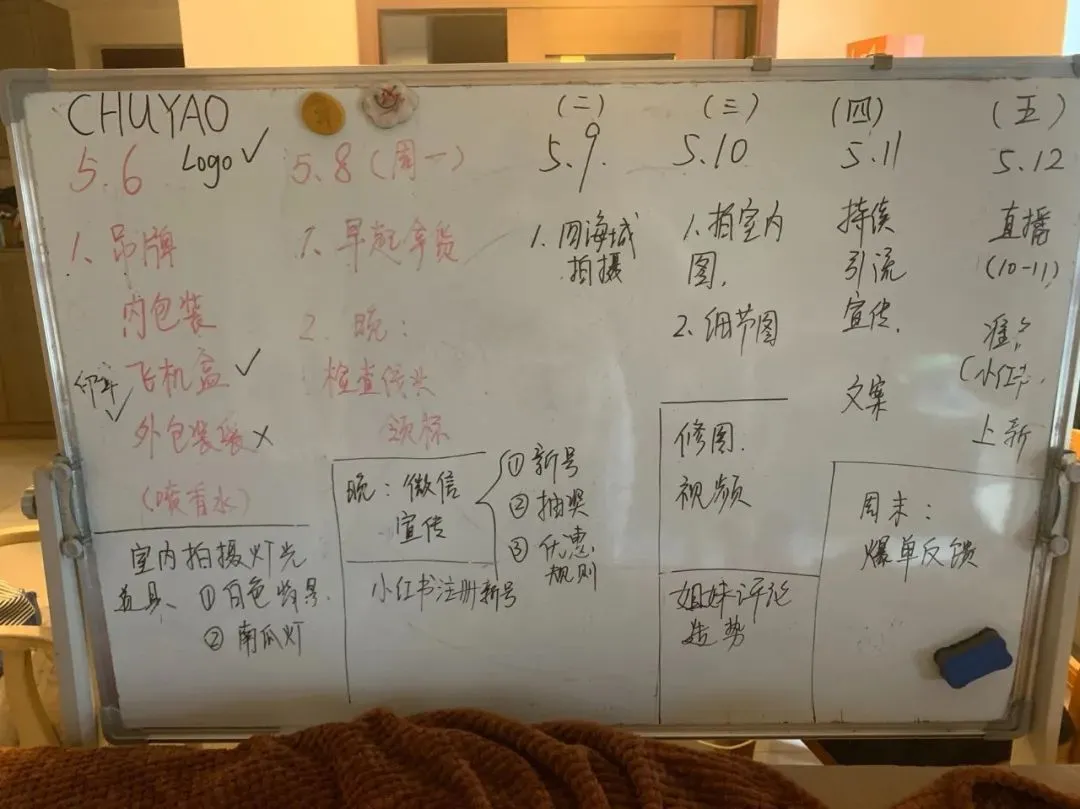 CHUYAO
5.6 Logo ✓
1. 吊牌
内包装
飞机盒 ✓
外包装袋 ×
(喷香水)
室内拍摄灯光
道具、①白色背景.
②南瓜灯
5.8 (周一)
1. 早起拿货
2. 晚:
检查线头
领标
晚: 微信
宣传
①新号
②抽奖
③优惠
规则
小红书注册新号
(二)
5.9
1. 四海城
拍摄
(三)
5.10
1. 拍室内
图.
2. 细节图
修图.
视频
姐妹评论
造势
(四)
5.11
持续
引流
宣传.
文案
(五)
5.12
直播
(10-11)
上新
周末:
爆单反馈